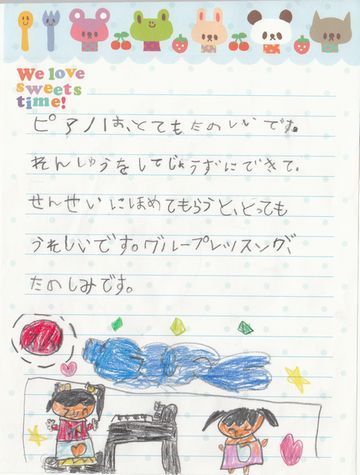 We love
sweets
time!
ピアノは、とてもたのしいです。
れんしゅうをしてじょうずにできて、
せんせいにほめてもらうと、とっても
うれしいです。グループレッスンが、
たのしみです。